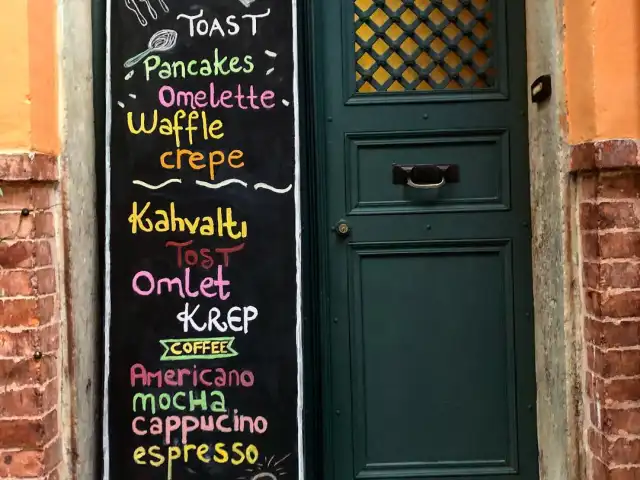 TOAST
Pancakes
Omelette
Waffle
crepe
Kahvaltı
TOST
Omlet
KREP
COFFEE
Americano
mocha
cappucino
espresso